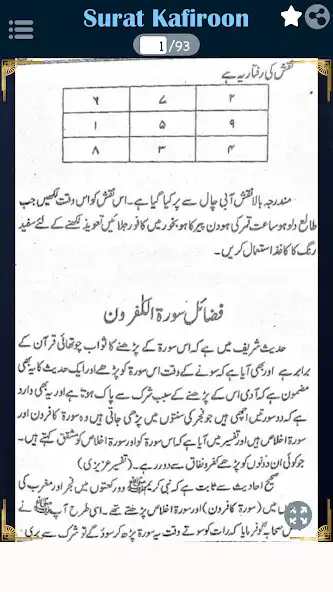 Surat Kafiroon
1 /93
نقش کی رفتار یہ ہے
۶ ۷ ۲
۱ ۵ ۹
۸ ۳ ۴
مندرجہ بالا نقش آبی چال سے پر کیا گیا ہے۔ اس نقش کو اس وقت لکھیں جب
طالع دلو ہو ساعت قمر کی ہو دن پیر کا ہو بخور میں کافور جلائیں تعویذ لکھنے کے لئے سفید
رنگ کا کاغذ استعمال کریں۔
فضائل سورۃ الکٰفرون
حدیث شریف میں ہے کہ اس سورۃ کے پڑھنے کا ثواب چوتھائی قرآن کے
برابر ہے اور بھی آیا ہے کہ سونے کے وقت اس سورۃ کو پڑھے اور ایک حدیث کا یہ بھی
مضمون ہے کہ آدمی اس کے پڑھنے کے سبب شرک سے پاک ہوتا ہے اور یہ بھی وارد
ہے کہ دو سورتیں اچھی ہیں جو فجر کی سنتوں میں پڑھی جاتی ہیں وہ سورۃ کافرون اور
سورۃ اخلاص ہیں اور تفسیر میں آیا ہے کہ اس سورۃ کو اور سورۃ اخلاص کو مشقق کہتے ہیں۔
جو کوئی ان دونوں کو پڑھے کفر و نفاق سے دور رہے۔ (تفسیر عزیزی)
صحیح احادیث سے ثابت ہے کہ نبی کریم ﷺ دو رکعتوں میں فجر اور مغرب کی
میں (سورۃ کافرون) اور سورۃ اخلاص پڑھتے تھے۔ اسی طرح آپ ﷺ نے
صحابہ کو فرمایا کہ رات کو سوتے وقت یہ سورۃ پڑھ کر سوؤ گے تو شرک سے بری